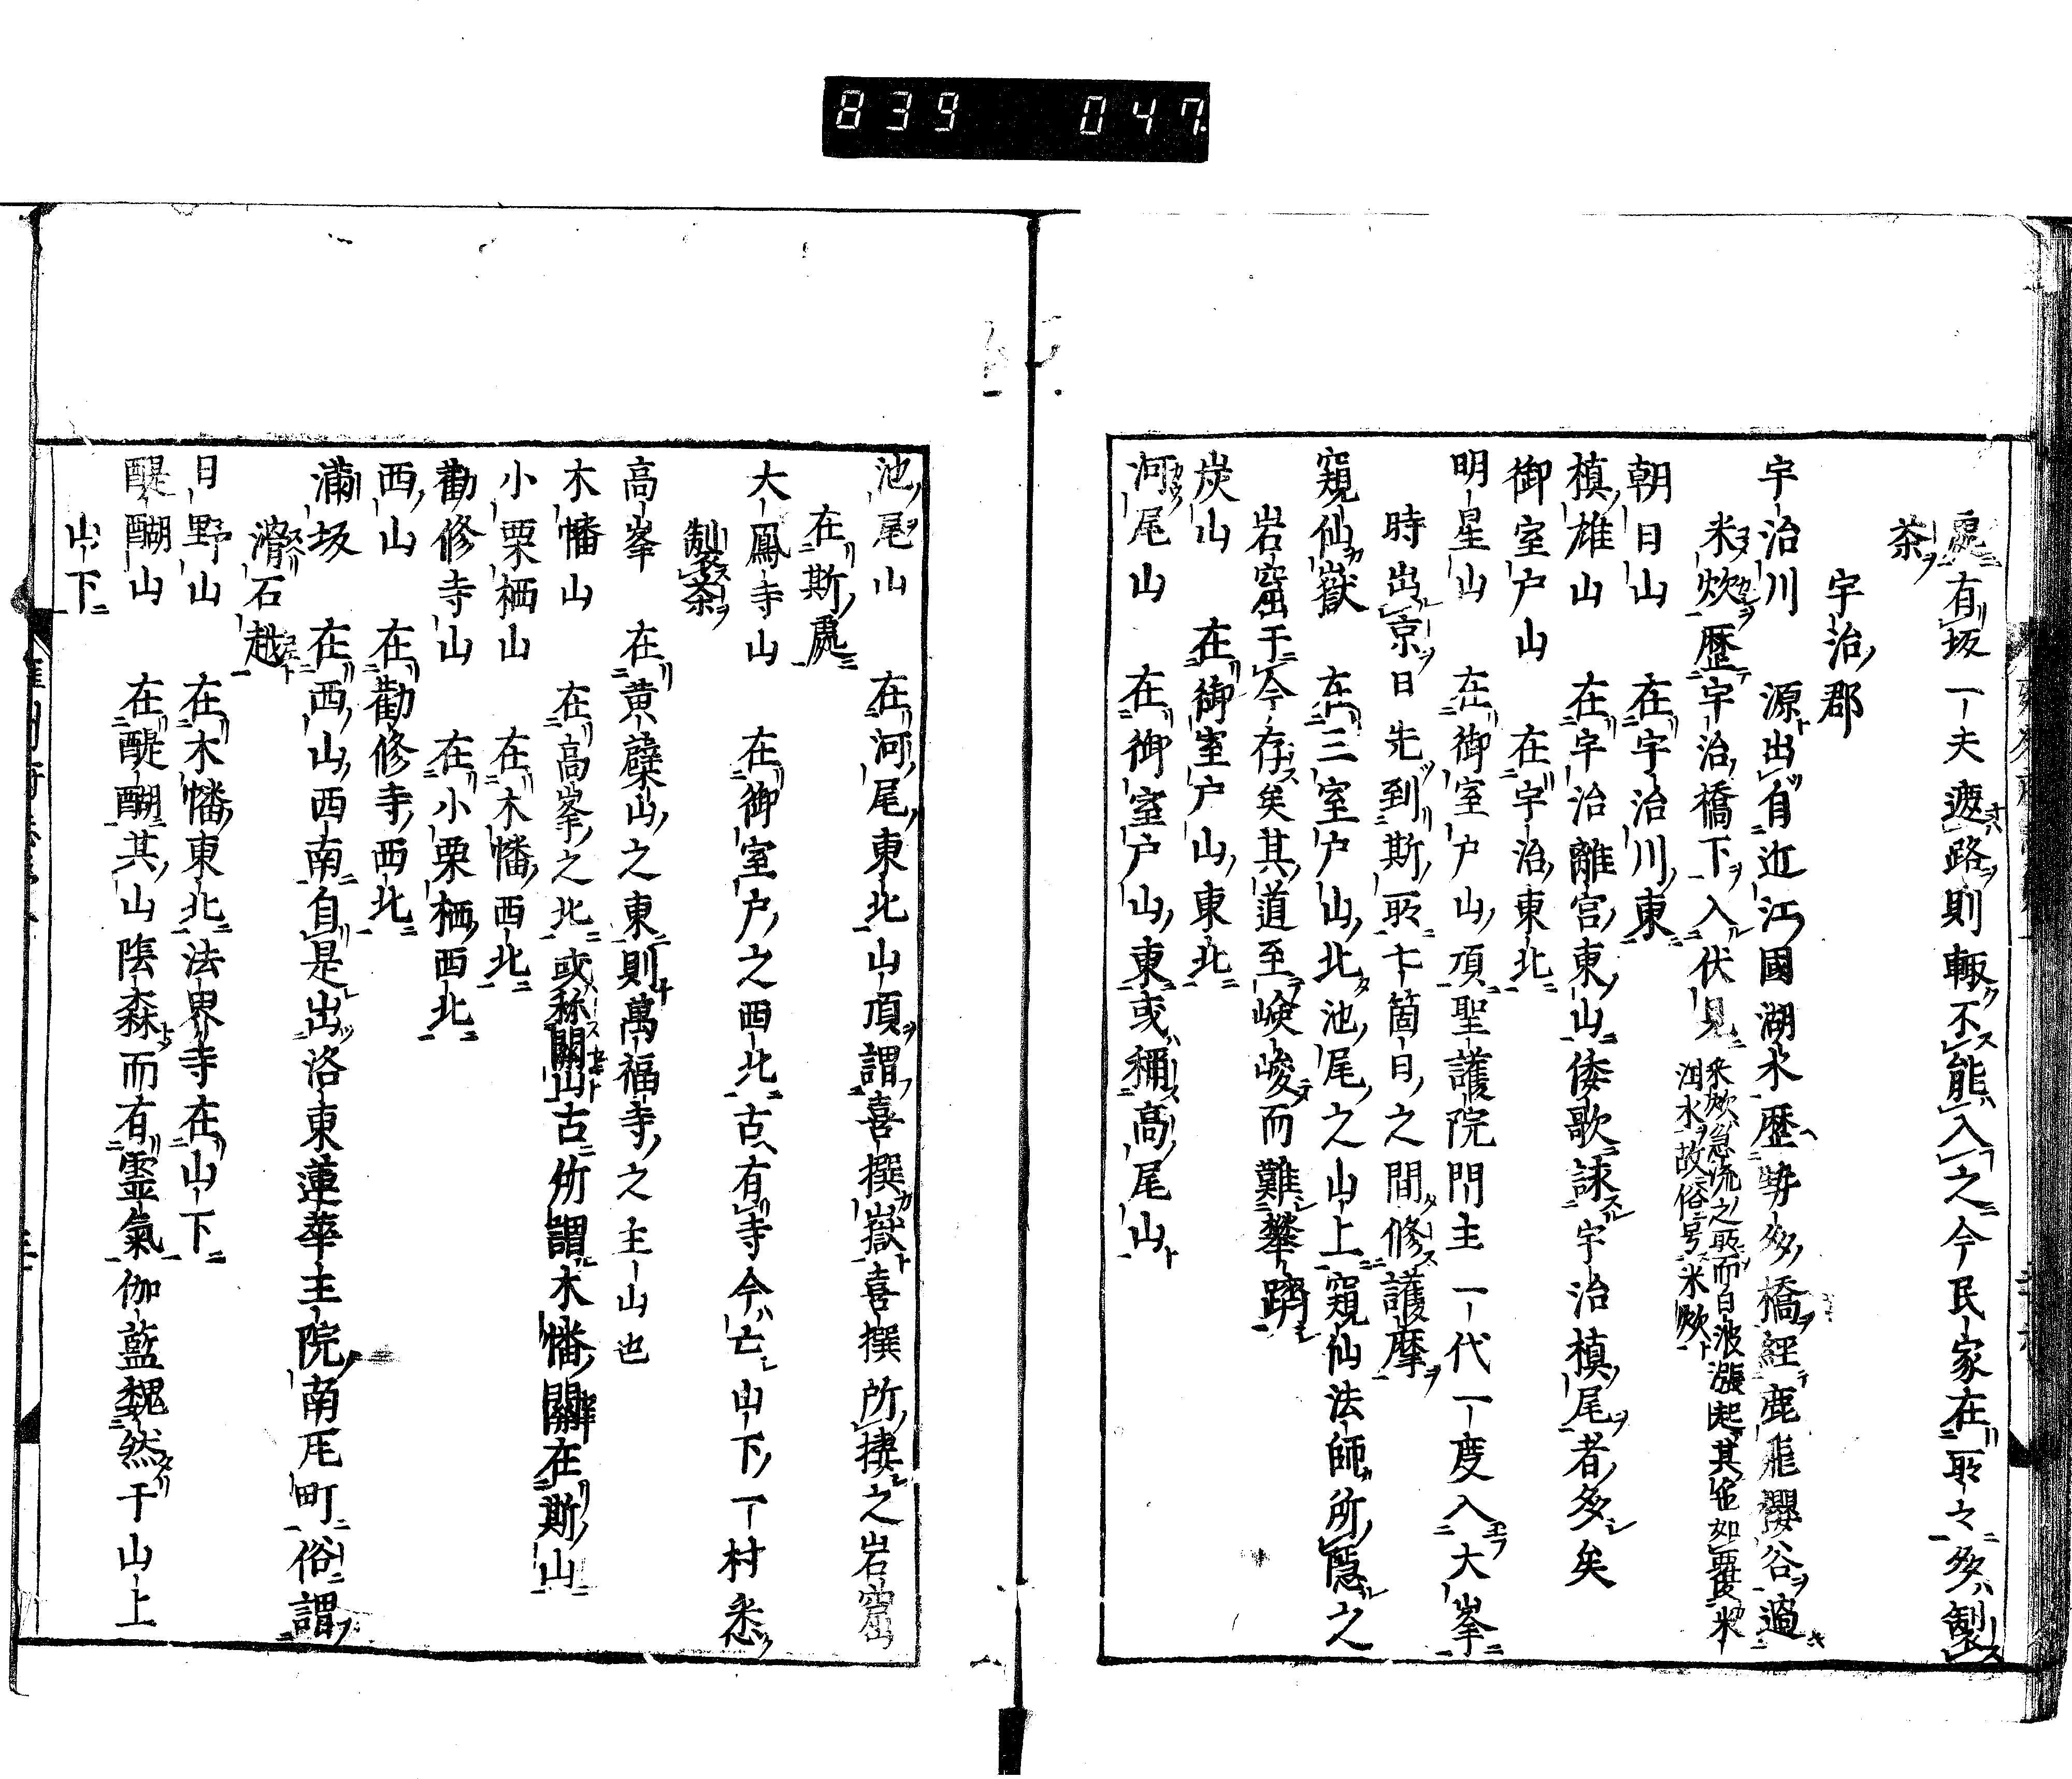 839 047
處有坂一夫遮路則輙不能入之今民家在所々多製
茶
宇治郡
宇治川 源出自近江國湖水歴勢多橋經鹿飛櫻谷過
米炊歴宇治橋下入伏見 米炊急流之所而白波漲起其色如要米
泔水故俗号米炊
朝日山 在宇治川東
槙雄山 在宇治離宮東山倭歌詠宇治槙尾者多矣
御室戸山 在宇治東北
明星山 在御室戸山頂聖護院門主一代一度入大峯
時出京日先到斯所七箇日之間修護摩
窺仙嶽 在三室戸山北池尾之山上窺仙法師所隱之
岩窟于今存矣其道至嶮峻而難攀躋
炭山 在御室戸山東北
河尾山 在御室戸山東或稱高尾山
池尾山 在河尾東北山頂謂喜撰嶽喜撰所棲之岩窟
在斯處
大鳳寺山 在御室戸之西北古有寺今亡山下一村悉
製茶
高峯 在黄蘗山之東則萬福寺之主山也
木幡山 在高峯之北或称關山古所謂木幡關在斯山
小栗栖山 在木幡西北
勸修寺山 在小栗栖西北
西山 在勸修寺西北
瀟坂 在西山西南自是出洛東蓮華主院南瓦町俗謂
滑石越
日野山 在木幡東北法界寺在山下
醍醐山 在醍醐其山陰森而有霊氣伽藍魏然于山上
山下